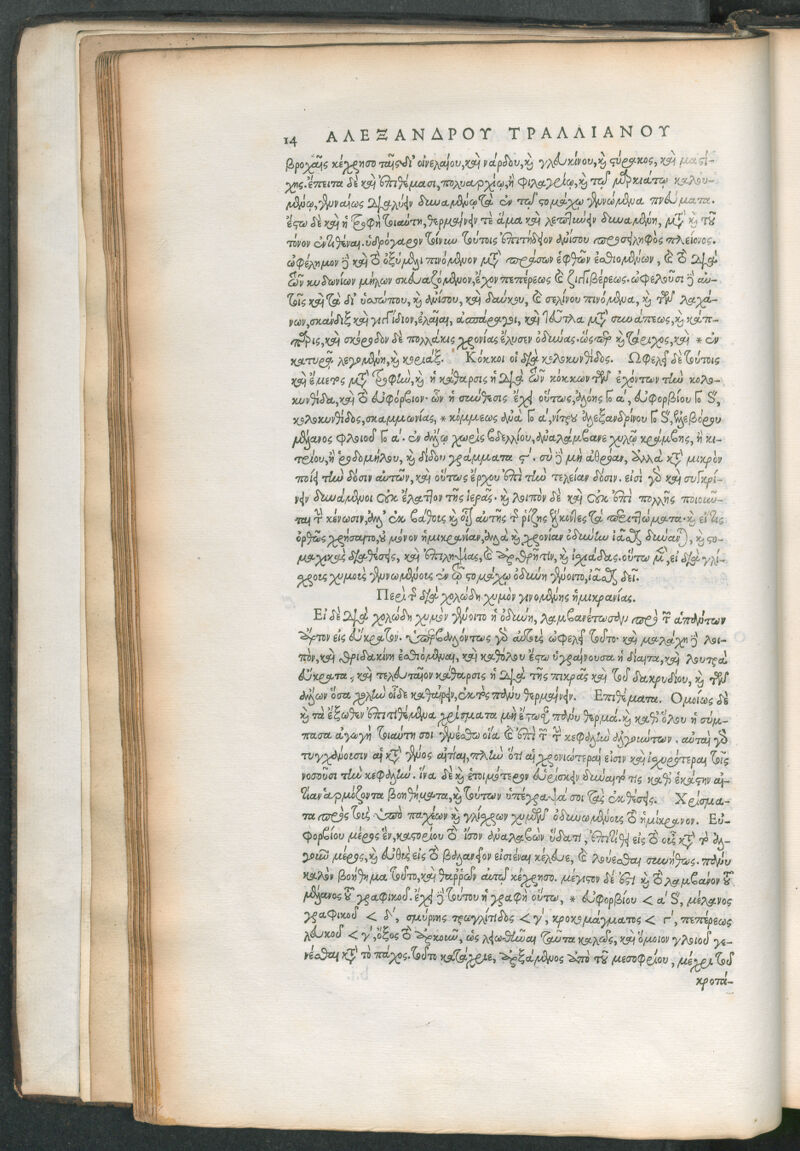 14 ΑΛΕΞΑΝΔΡΟΥ ΤΡΑΛΛΙΑΝΟΥ
βροχαῖς κέχρησο ταῖς δι' οἰνελαίου, καὶ νάρδου, καὶ γλυκίνου, καὶ στύρακος, καὶ μαστί-
χης. ἔπειτα δὲ καὶ ἐπιθέμασι, πολυαρχίῳ, ἢ φιλαγρίῳ, καὶ τῷ καλου-
μένῳ, γενναίως διαλύειν δυναμένῳ τὰ ἐν τῷ στομάχῳ γινόμενα πνεύματα.
ἔστω δὲ καὶ ἡ τροφὴ τοιαύτη, θερμαίνειν τε ἅμα καὶ λεπτύνειν δυναμένη, μετὰ καὶ τοῦ
τόνον ἐντιθέναι. ὑδρόγαρον τοίνυν τούτοις ἐπιτήδειον ἀνίσου προσειληφὸς πλείονος.
ὠφέλιμον δὲ καὶ τὸ ὀξύμελι πινόμενον μετὰ πράσων ἑφθῶν ἐσθιομένων, καὶ τὸ διὰ
τῶν κυδωνίων μήλων σκευαζόμενον, ἔχον πεπέρεως καὶ ζιγγιβέρεως. ὠφελοῦσι δὲ αὐ-
τοῖς καὶ τὰ δι' ὑσσώπου, καὶ ἀνίσου, καὶ δαύκου, καὶ σελίνου πινόμενα, καὶ τῶν λαχά-
νων, σκάνδιξ καὶ γιγγίδιον, ἐλαῖαι, ἀσπάραγοι, καὶ μετὰ σινάπεως, καὶ κάπ-
παρις, καὶ σκόροδον δὲ πολλάκις χρονίας ἔλυσεν ὀδύνας. ὥσπερ καὶ τάριχος, καὶ * ἐν
κατυρᾷ λεγομένη, καὶ Κόκκοι οἱ διὰ κολοκυνθίδος. Ὠφελεῖ δὲ τούτοις
καὶ ἔμετος μετὰ τροφὴν, καὶ ἡ κάθαρσις ἡ διὰ τῶν κόκκων τῶν ἐχόντων τὴν κολο-
κυνθίδα, καὶ τὸ εὐφόρβιον· ὧν ἡ σύνθεσις ἔχει οὕτως, ἀλόης α΄, εὐφορβίου
κολοκυνθίδος, σκαμμωνίας, * κόμμεως ἀνὰ α΄, νίτρου ἀλεξανδρίνου ἐλλεβόρου
μέλανος φλοιοῦ α΄. ἐν ἄλλῳ χωρὶς βδελλίου, ἀναλάμβανε χυλῷ κράμβης, ἢ κι-
τρίου, ἢ ῥοδομήλου, καὶ δίδου γράμματα ϛ΄. σὺ δὲ μὴ ἀθρόαν, ἀλλὰ κατὰ μικρὸν
ποίει τὴν δόσιν αὐτῶν, καὶ οὕτως ἔρχου ἐπὶ τὴν τελείαν δόσιν. εἰσὶ γὰρ καὶ συγκρί-
νειν δυνάμενοι οὐκ ἔλαττον τῆς ἱερᾶς. καὶ λοιπὸν δὲ καὶ οὐκ ἐπὶ πολλῆς ποιοῦν-
ται τὴν κένωσιν, ἀλλ' ἐκ βάθους καὶ ἐξ αὐτῆς τῆς ῥίζης ἕλκοντες τὰ περιττώματα. καὶ εἴ τις
ὀρθῶς χρήσαιτο, οὐ μόνον ἡμικρανίαν, ἀλλὰ καὶ χρονίαν ὀδύνην ἰᾶσθαι δύναται, καὶ στο-
μαχικὰς διαθέσεις, καὶ ἐπιληψίας, καὶ ἀρθρῖτιν, καὶ ἰσχιάδας. οὕτω μὲν, εἰ διὰ γλί-
χροις χυμοῖς γινομένοις ἐν τῷ στομάχῳ ὀδύνη γένοιτο, ἰᾶσθαι δεῖ.
Περὶ τῆς διὰ χολώδη χυμὸν γινομένης ἡμικρανίας.
Εἰ δὲ διὰ χολώδη χυμὸν γένοιτο ἡ ὀδύνη, λαμβανέτωσαν πρὸ τῶν ἀπάντων
ἄρτον εἰς εὔκρατον. ὑπερβαλλόντως γὰρ αὐτοὺς ὠφελεῖ τοῦτο. καὶ μαλάχη δὲ λοι-
πὸν, καὶ θριδακίνη ἐσθιόμεναι, καὶ καθόλου ἔστω ὑγραίνουσα ἡ δίαιτα, καὶ λουτρὰ
εὔκρατα, καὶ τελευταῖον κάθαρσις ἡ διὰ τῆς πικρᾶς καὶ τοῦ δακρυδίου, καὶ τῶν
ἄλλων ὅσα χολὴν οἶδε καθαίρειν, ἐκτὸς πάνυ θερμαίνειν. Ἐπιθέματα. Ὁμοίως δὲ
καὶ τὰ ἔξωθεν ἐπιτιθέμενα χρίσματα μὴ ἔστω πάνυ θερμά. καὶ καθ' ὅλου ἡ σύμ-
πασα ἀγωγὴ τοιαύτη σοι γινέσθω οἵα καὶ ἐπὶ τῶν τὴν κεφαλὴν ἀλγούντων. αὗται γὰρ
τυγχάνουσιν αἱ κατὰ γένος αἰτίαι, πλὴν ὅτι αἱ χρονιώτεραί εἰσιν καὶ ἰσχυρότεραι τοῖς
νοσοῦσι τὴν κεφαλήν. ἵνα δὲ καὶ ἑτοιμότερον εὑρίσκειν δύναιτό τις καθ' ἑκάστην αἰ-
τίαν ἁρμόζοντα βοηθήματα, καὶ τούτων ὑπέγραψά σοι τὰς ἐκθέσεις. Χρίσμα-
τα πρὸς τοὺς ὑπὸ παχέων καὶ γλίχρων χυμῶν ὀδυνωμένοις τὸ ἡμίκρανον. Εὐ-
φορβίου μέρος ἓν, καστορίου τὸ ἴσον ἀναλαβὼν ὕδατι, ἐπιτίθει εἰς τὸ οὖς κατὰ τὸ ἀλ-
γοῦν μέρος, καὶ εὐθὺς εἰς τὸ βαλανεῖον εἰσιέναι κέλευε, καὶ λούεσθαι συνήθως. πάνυ
καλὸν βοήθημα τοῦτο, καὶ θαρρῶν αὐτῷ κέχρησο. μέγιστον δέ ἐστι καὶ τὸ λαμβάνον τοῦ
μέλανος τοῦ γραφικοῦ. ἔχει δὲ τούτου ἡ γραφὴ οὕτω, * εὐφορβίου < α μέλανος
γραφικοῦ < δ΄, σμύρνης τρωγλίτιδος < γ΄, κροκομάγματος < γ΄, πεπέρεως
λευκοῦ < γ΄, ὄξος τὸ ἀρκοῦν, ὡς λειωθῆναι ταῦτα καλῶς, καὶ ὅμοιον γλοιοῦ γε-
νέσθαι κατὰ τὸ πάχος. τοῦτο κατάχριε, ἀρξάμενος ἀπὸ τοῦ μεσοφρίου, μέχρι τοῦ
κροτά-